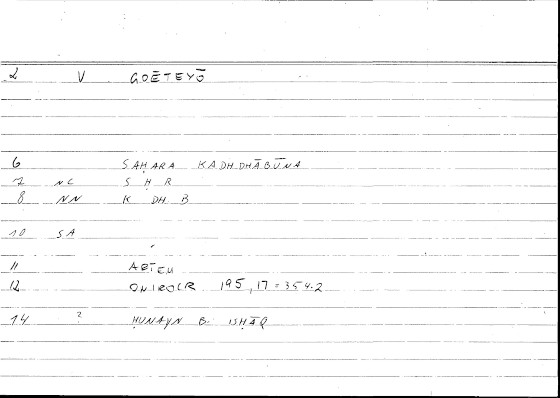 2 V GOĒTEYŌ
6 SAḤARA KADHDHĀBŪNA
7 NC S Ḥ R
8 NN K DH B
10 SA
11 ARTEM
12 ONIROCR 195,17 = 354.2
14 ? ḤUNAYN B. ISḤĀQ